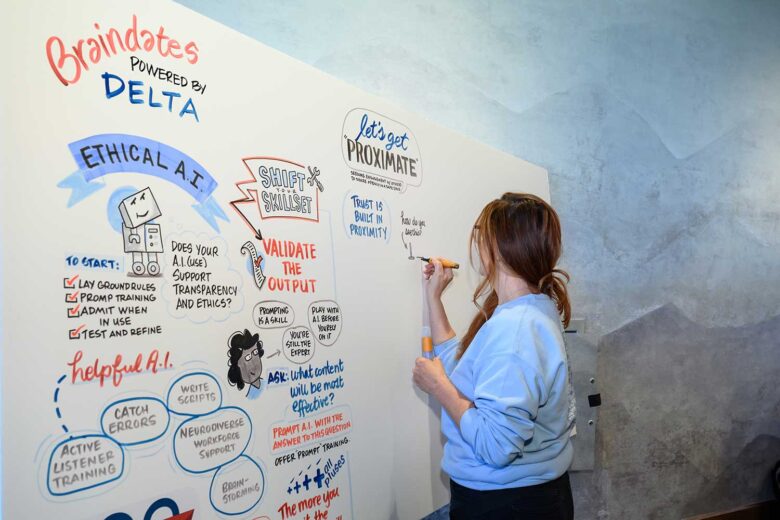 Braindates
POWERED BY
DELTA
ETHICAL A.I.
TO START:
LAY GROUND RULES
PROMP TRAINING
ADMIT WHEN
IN USE
TEST AND REFINE
DOES YOUR
A.I. (USE)
SUPPORT
TRANSPARENCY
AND ETHICS?
helpful A.I.
WRITE
SCRIPTS
CATCH
ERRORS
NEURODIVERSE
WORKFORCE
SUPPORT
ACTIVE
LISTENER
TRAINING
BRAIN-
STORMING
SHIFT
YOUR
SKILLSET
VALIDATE
THE
OUTPUT
PROMPTING
IS A SKILL
PLAY WITH
A.I. BEFORE
YOU RELY
ON IT
YOU'RE
STILL THE
EXPERT
ASK: What content
will be most
effective?
PROMPT A.I. WITH THE
ANSWER TO THIS QUESTION
OFFER PROMPT TRAINING.
all
pluses
The more you
let's get
"PROXIMATE"
TRUST IS
BUILT IN
PROXIMITY
how do you